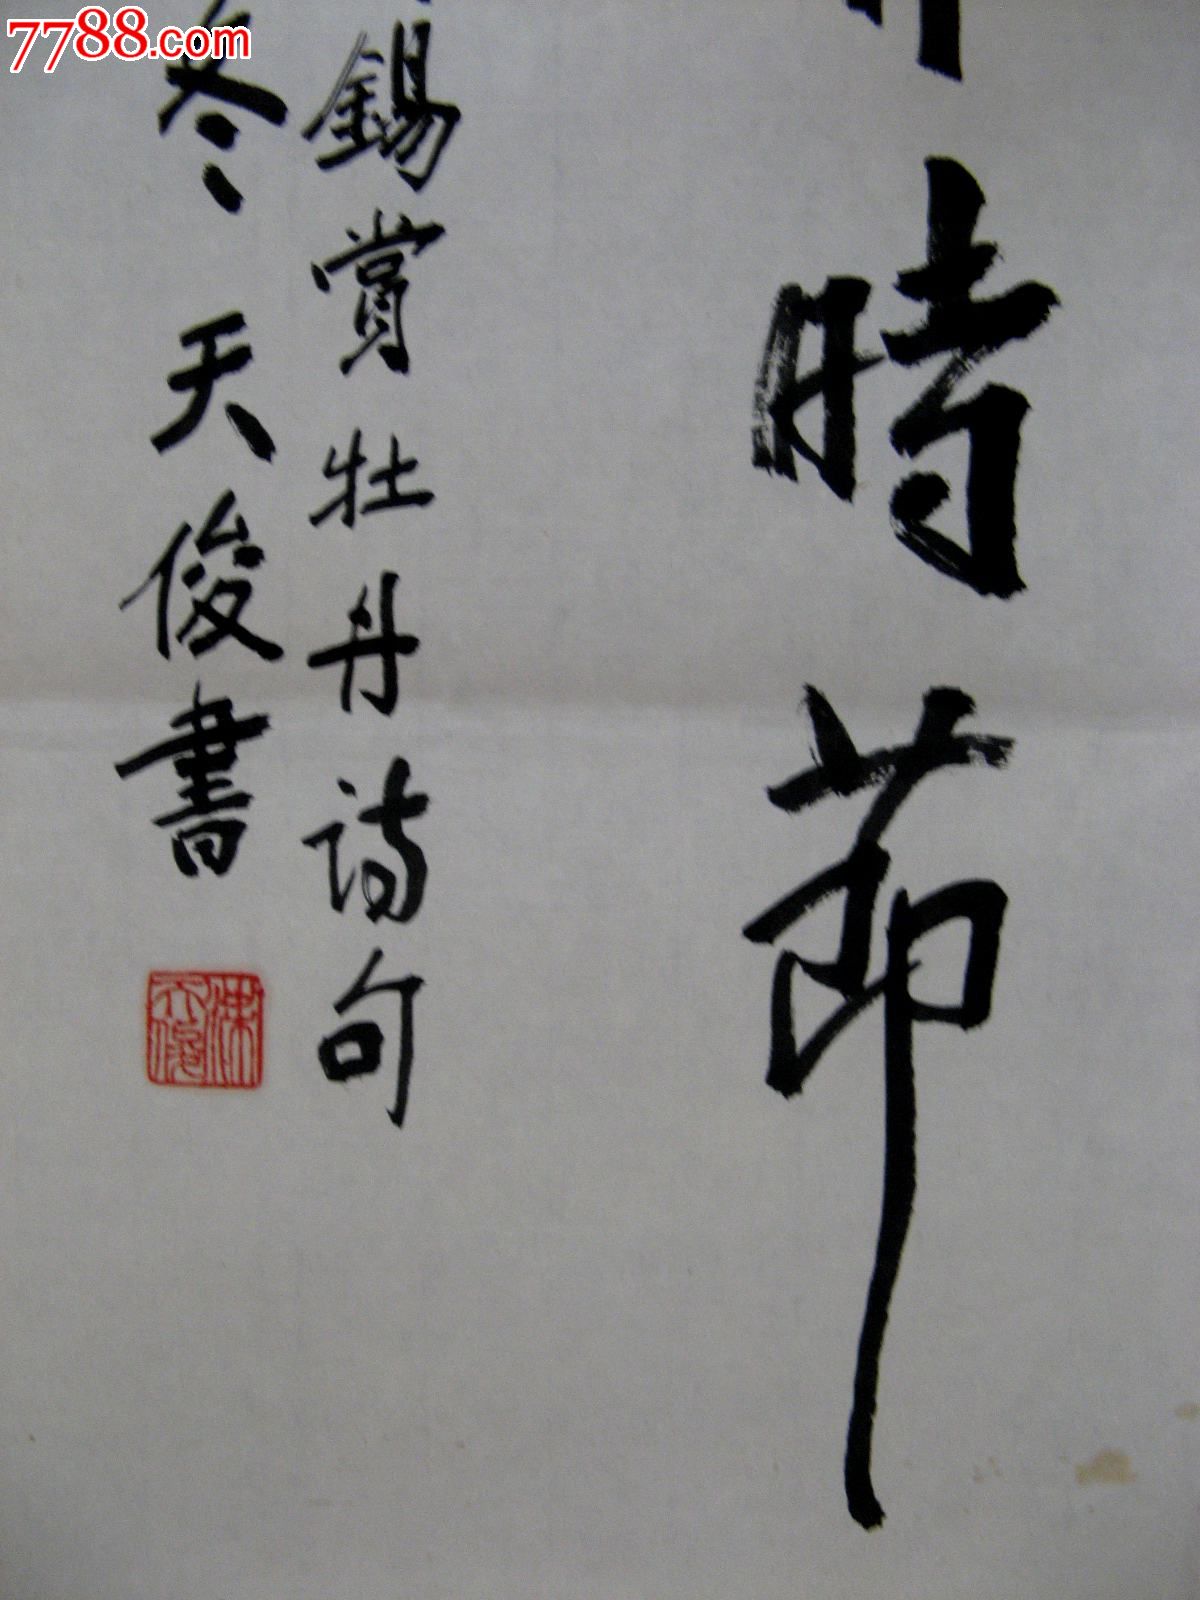 7788.com
時節
錫賞牡丹詩句
冬天俊書